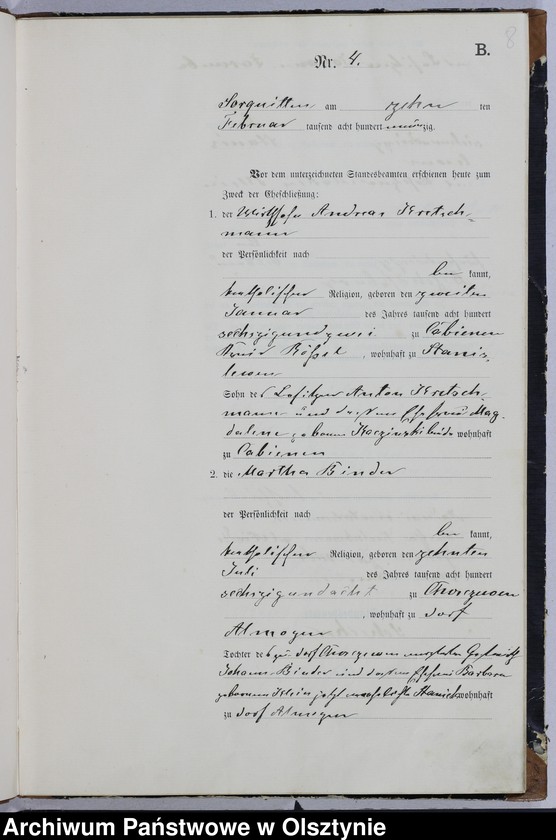 8
B.
Nr. 4.
Sorquitten am zehn ten
Februar tausend acht hundert neunzig.
Vor dem unterzeichneten Standesbeamten erschienen heute zum
Zweck der Eheschließung:
1. der Wirthssohn Andreas Kretsch-
mann
der Persönlichkeit nach
be kannt,
katholischer Religion, geboren den zweiten
Januar des Jahres tausend acht hundert
sechszigundzwei zu Cabienen
Kreis Rößel, wohnhaft zu Stanis-
lewen
Sohn des Besitzer Anton Kretsch-
mann und dessen Ehefrau Mag-
dalene geborene wohnhaft
zu Cabienen
2. die Martha Binder
der Persönlichkeit nach
be kannt,
katholischer Religion, geboren den zehnten
Juli des Jahres tausend acht hundert
sechszigundacht zu
, wohnhaft zu Dorf
Almoyen
Tochter des zu Dorf
Johann Binder und dessen Ehefrau Barbara
geborenen Klein jetzt wohnhaft
zu Dorf Almoyen
Archiwum Państwowe w Olsztynie